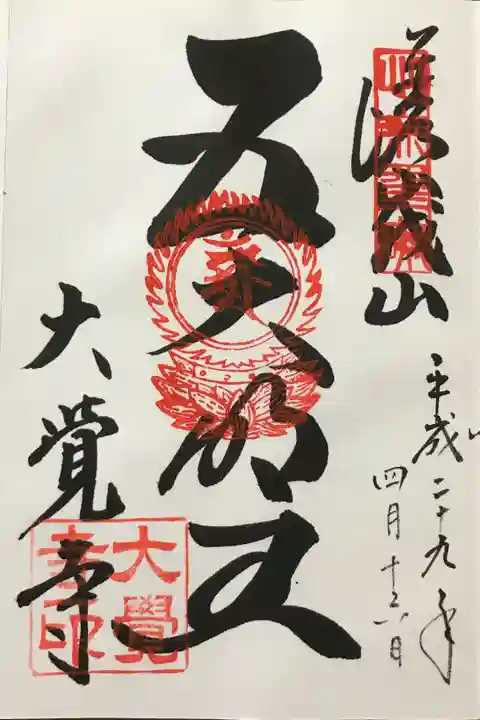 山
平成二十九年
四月十六日
五大明王
大覺寺
大覺
寺印